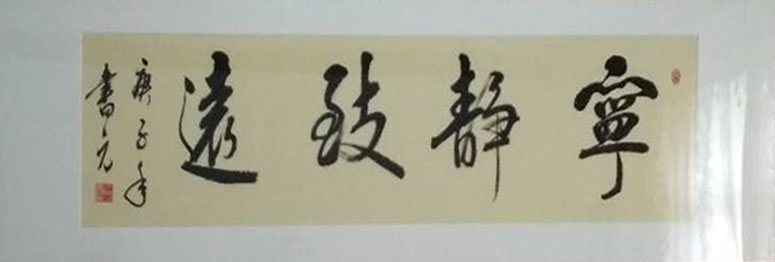 寧靜致遠
庚子年
書元